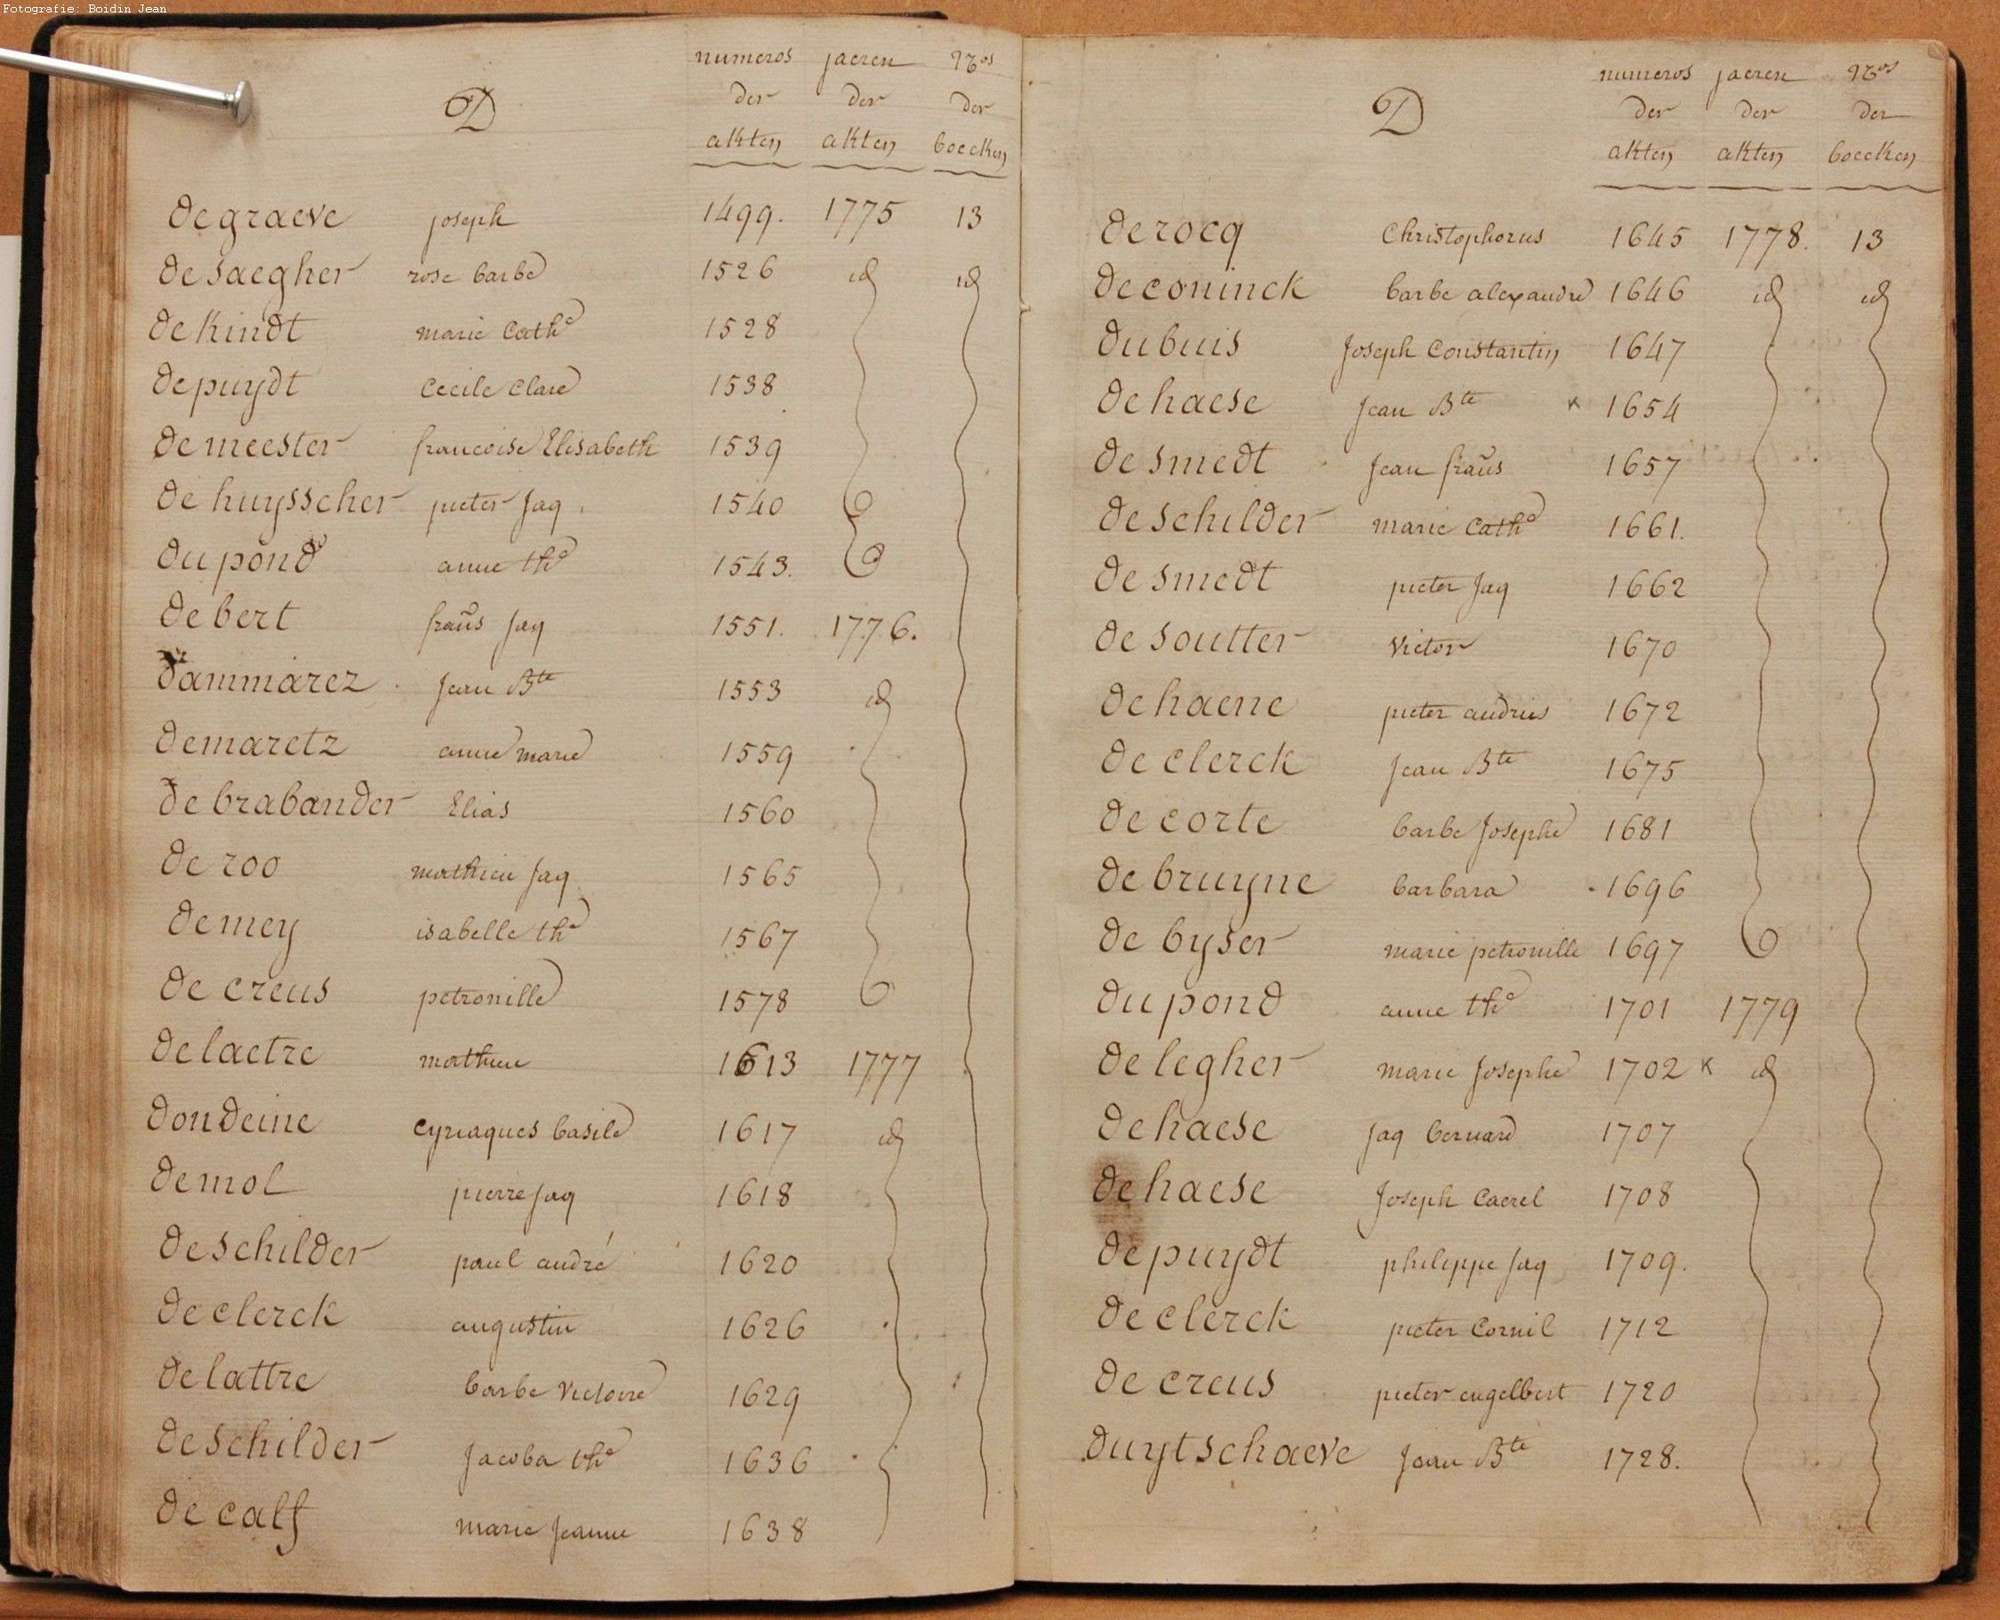 Fotografie: Boidin Jean
D
numeros jaeren Nos
der der der
akten akten boecken
degraeve joseph 1499. 1775 13
desaegher rose barbe 1526 id id
dekindt marie Cathe 1528
depuydt Cecile Clare 1538
demeester francoise Elisabeth 1539
de huysscher pieter Jaq 1540
dupond anne the 1543.
debert frans Jaq 1551. 1776.
dammarez Jean Bte 1553 id
demaretz anne marie 1559
de brabander Elias 1560
de roo mathieu Jaq 1565
demey isabelle the 1567
de creus petronille 1578
delaetre mathieu 1613 1777
dondeine cyriaques basile 1617 id
demol pierre Jaq 1618
deschilder paul andré 1620
declerck augustin 1626
delattre barbe victoire 1629
deschilder Jacoba the 1636
de calf marie Jeanne 1638
D
numeros jaeren Nos
der der der
akten akten boecken
derocq Christophorus 1645 1778. 13
deconinck barbe alexandre 1646 id id
dubuis Joseph Constantin 1647
dehaese Jean Bte x 1654
desmedt Jean frans 1657
deschilder marie Cathe 1661.
desmedt pieter Jaq 1662
desoutter victor 1670
dehaene pieter andries 1672
declerck Jean Bte 1675
decorte barbe Josephe 1681
debruyne barbara 1696
de byser marie petronille 1697
dupond anne the 1701 1779
delegher marie Josephe 1702 x id
dehaese Jaq bernard 1707
dehaese Joseph Caerel 1708
depuydt philippe Jaq 1709.
declerck pieter Cornil 1712
de creus pieter engelbert 1720
duytschaeve Jean Bte 1728.